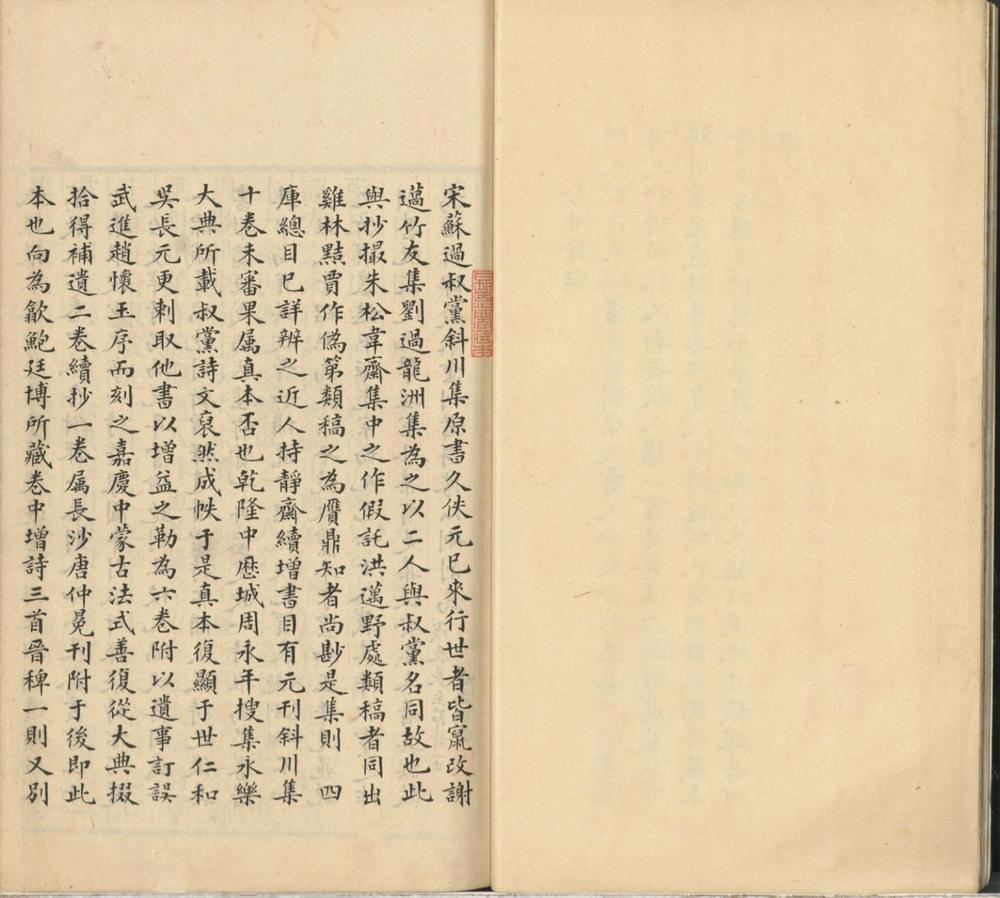 宋蘇過叔黨斜川集原書久佚元已來行世者皆竄改謝
薖竹友集劉過龍洲集為之以二人與叔黨名同故也此
與抄撮朱松韋齋集中之作假託洪邁野處類稿者同出
雞林黠賈作偽第類稿之為贋鼎知者尚尠是集則　四
庫總目已詳辨之近人持靜齋續增書目有元刊斜川集
十卷未審果属真本否也乾隆中歷城周永年搜集永樂
大典所載叔黨詩文裒然成帙于是真本復顯于世仁和
吳長元更刺取他書以增益之勒為六卷附以遺事訂誤
武進趙懷玉序而刻之嘉慶中蒙古法式善復從大典掇
拾得補遺二卷續抄一卷属長沙唐仲冕刊附于後即此
本也向為歙鮑廷博所藏卷中增詩三首晉稗一則又別